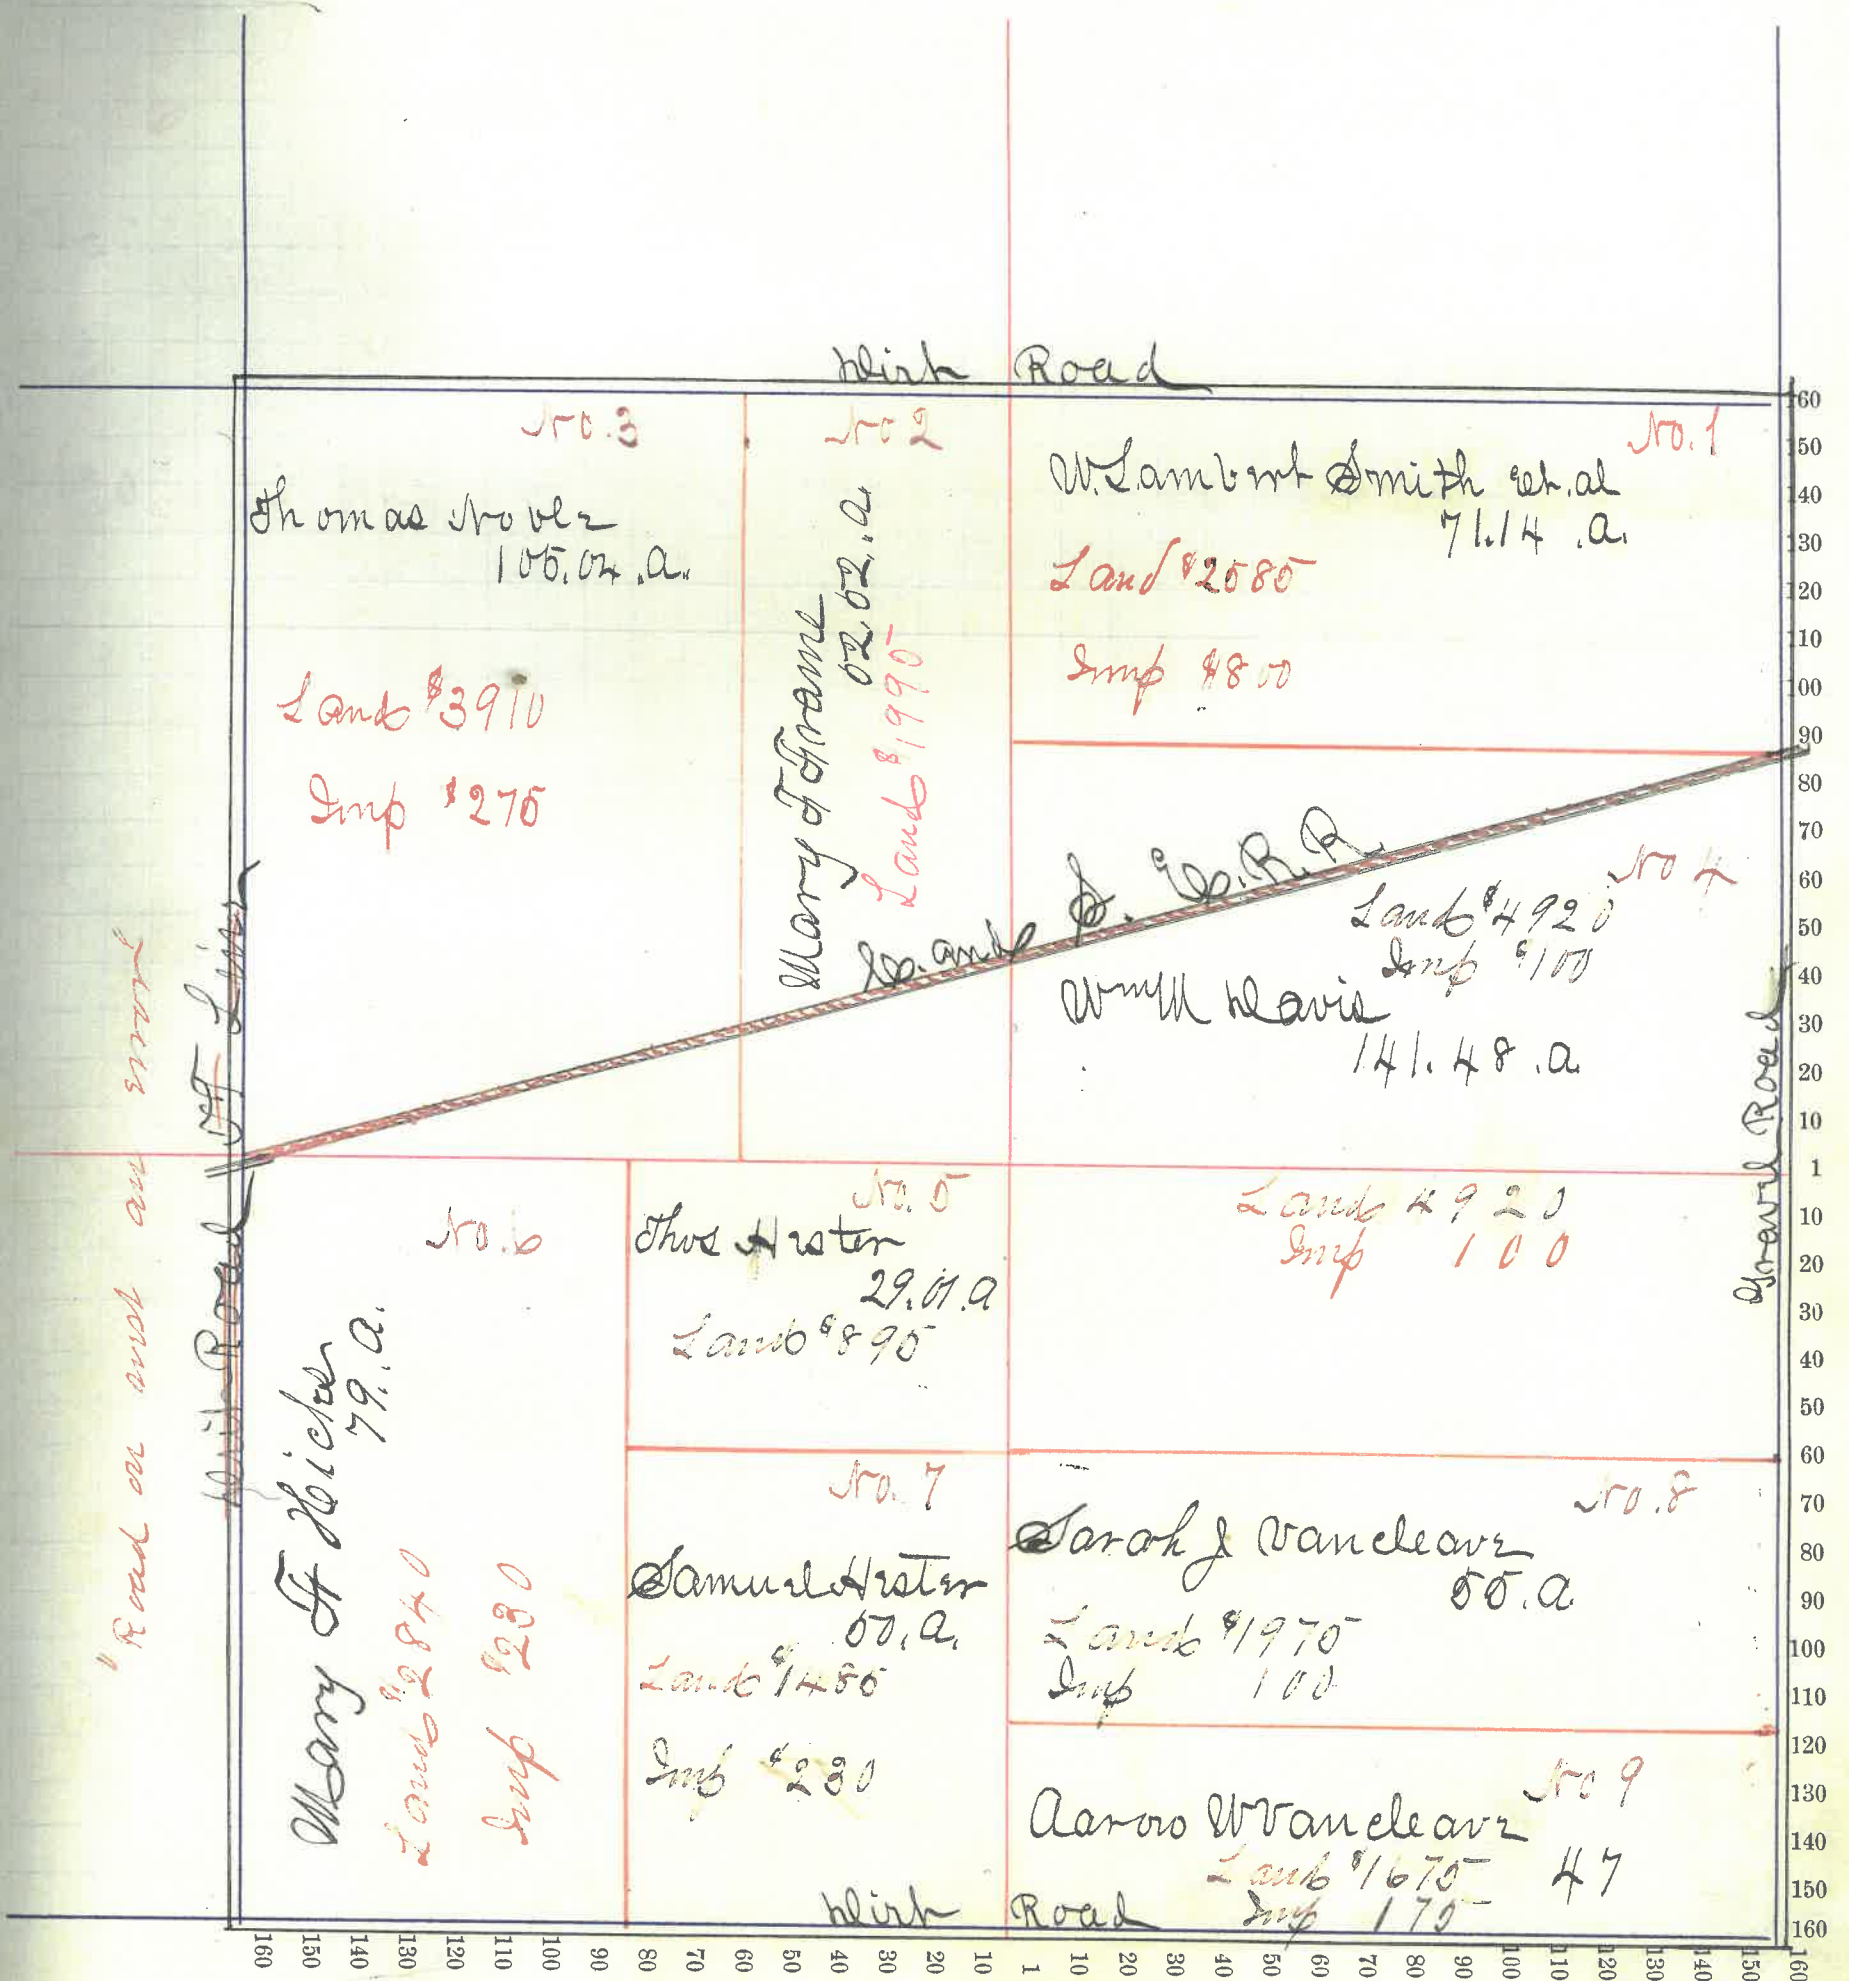 Dirt Road
No. 3
Thomas Noble
105.04 .a.
Land $3910
Imp $275
No 2
Mary F Frame
52.52 .a
Land $1990
No. 1
W. Lambert Smith et. al
71.14 .a.
Land $2585
Imp $800
C. and S. E. R. R.
No 4
Land $4920
Imp $100
Wm M Davis
141.48 .a.
Land 4920
Imp 100
Gravel Road
Dirt Road
"Road on west an error
No. 5
Thos Hester
29.01.a
Land $895
No. 6
Mary F Hicks
79. a.
Land $2840
Imp $230
No. 7
Samuel Hester
50. a.
Land $1485
Imp $230
No. 8
Sarah J Vancleave
55. a
Land $1975
Imp 100
No 9
Aaron W Vancleave
47
Land $1675
Imp 175
Dirt Road
60
50
40
30
20
10
00
90
80
70
60
50
40
30
20
10
1
10
20
30
40
50
60
70
80
90
100
110
120
130
140
150
160
160 150 140 130 120 110 100 90 80 70 60 50 40 30 20 10 1 10 20 30 40 50 60 70 80 90 100 110 120 130 140 150 160